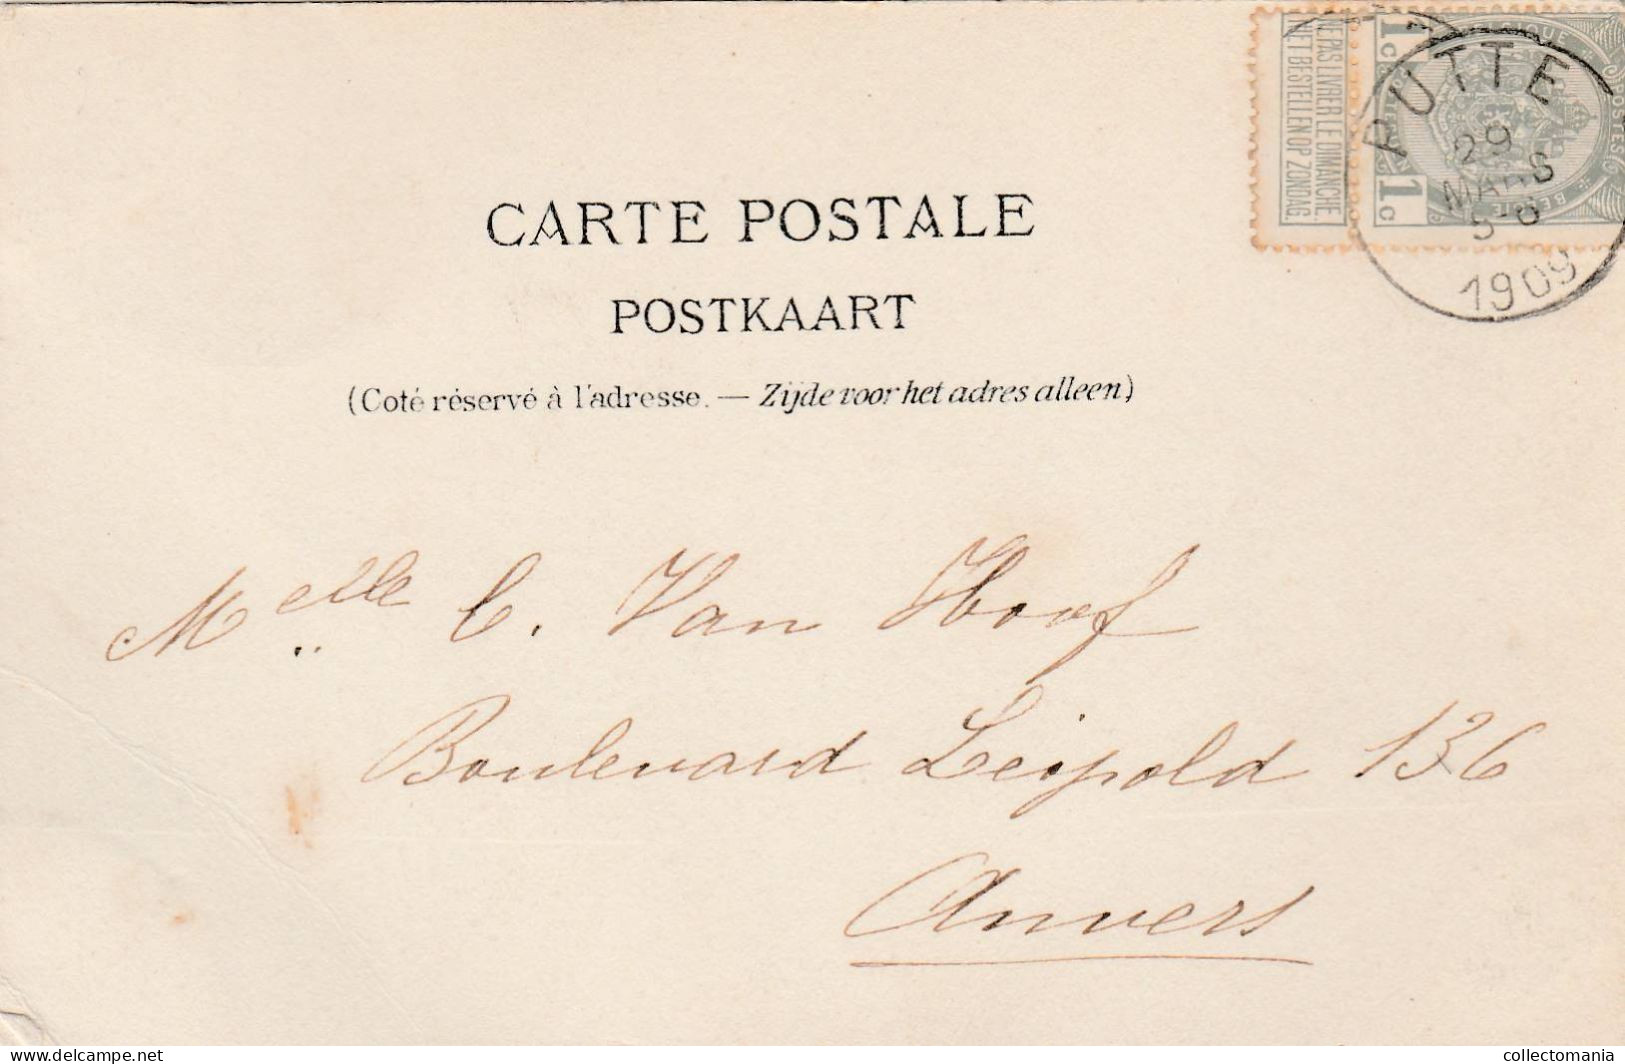 CARTE POSTALE
POSTKAART
(Coté réservé à l'adresse. — Zijde voor het adres alleen)
NE PAS LIVRER LE DIMANCHE
NIET BESTELLEN OP ZONDAG.
BELGIQUE
POSTES
BELGIE
1c
1c
PUTTE
29
MARS
5-6
1909
Melle C. Van Hoof
Boulevard Leopold 136
Anvers
collectomania
www.delcampe.net